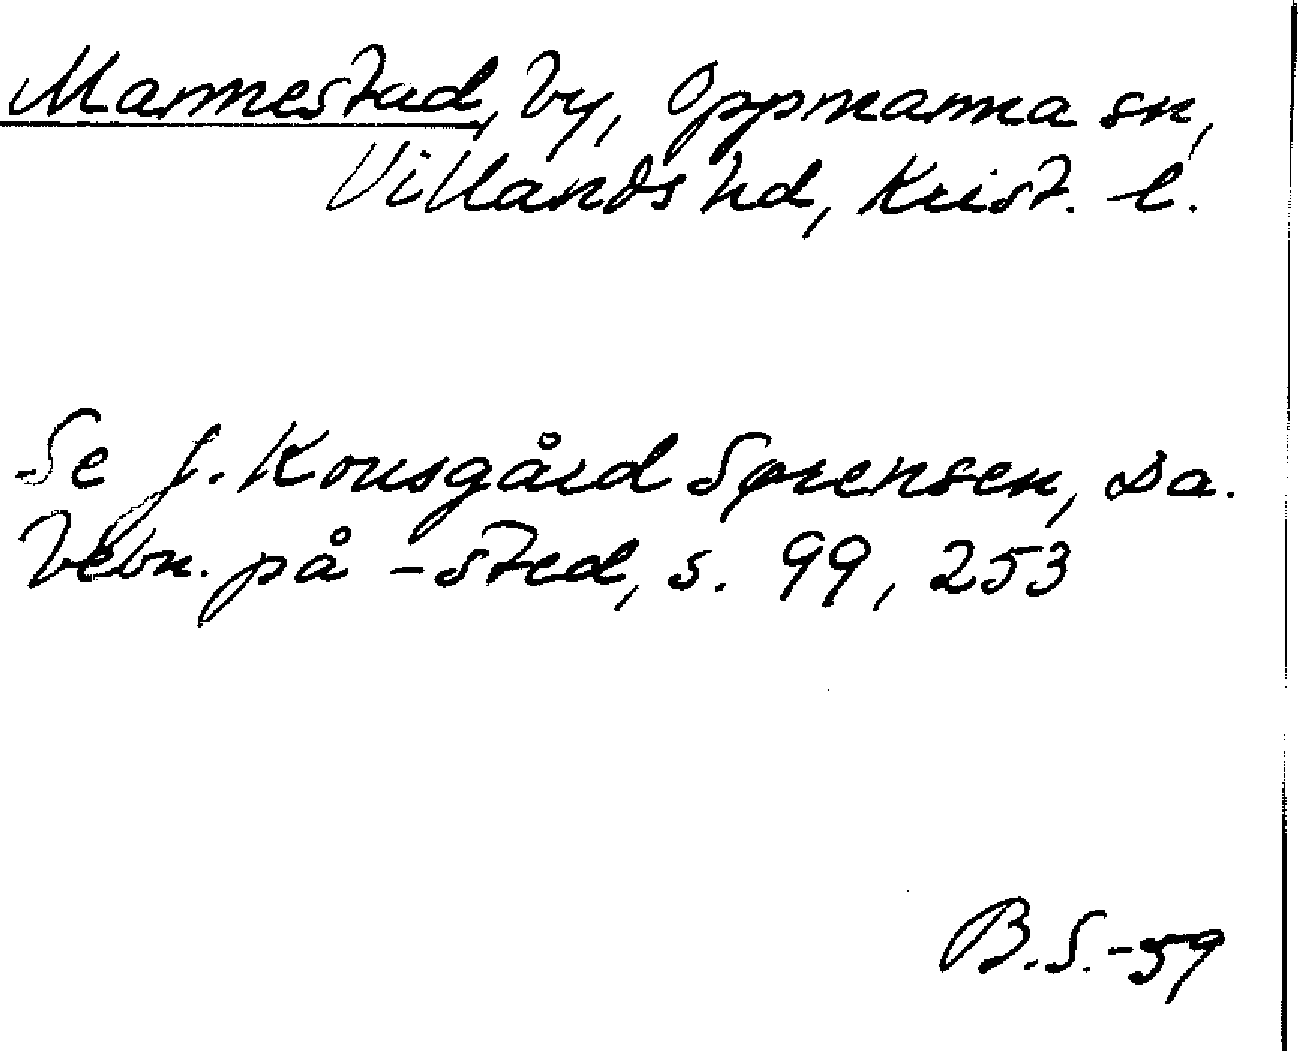 Mannestad, by, Oppmanna sn,
Villands hd, Krist. l.
Se J. Kousgård Sørensen, Da.
bebn. på -sted, s. 99, 253
B.S.-59